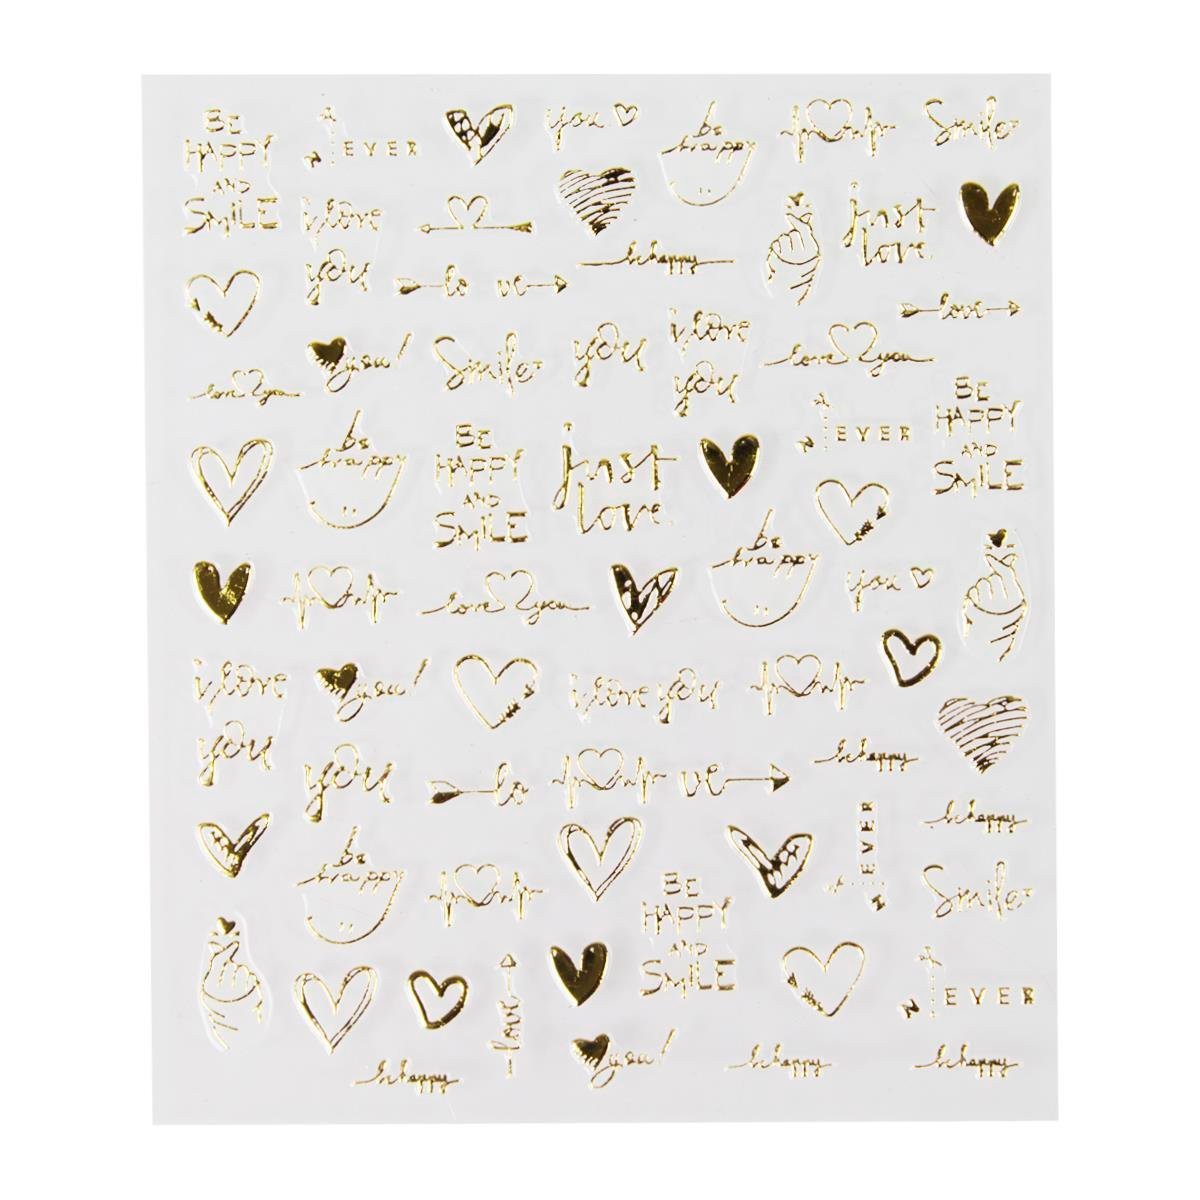 BE
HAPPY
AND
SMILE
NEVER
you
be
happy
Smile
i love
you
just
love
be happy
lo ve
love
you!
Smile
you
i love
you
love you
love you
BE
HAPPY
AND
SMILE
NEVER
be
happy
BE
HAPPY
AND
SMILE
just
love
be
happy
you
love you
i love
you
you!
i love you
be happy
you
lo
ve
be happy
NEVER
be
happy
BE
HAPPY
AND
SMILE
Smile
NEVER
love
you!
be happy
be happy
be happy